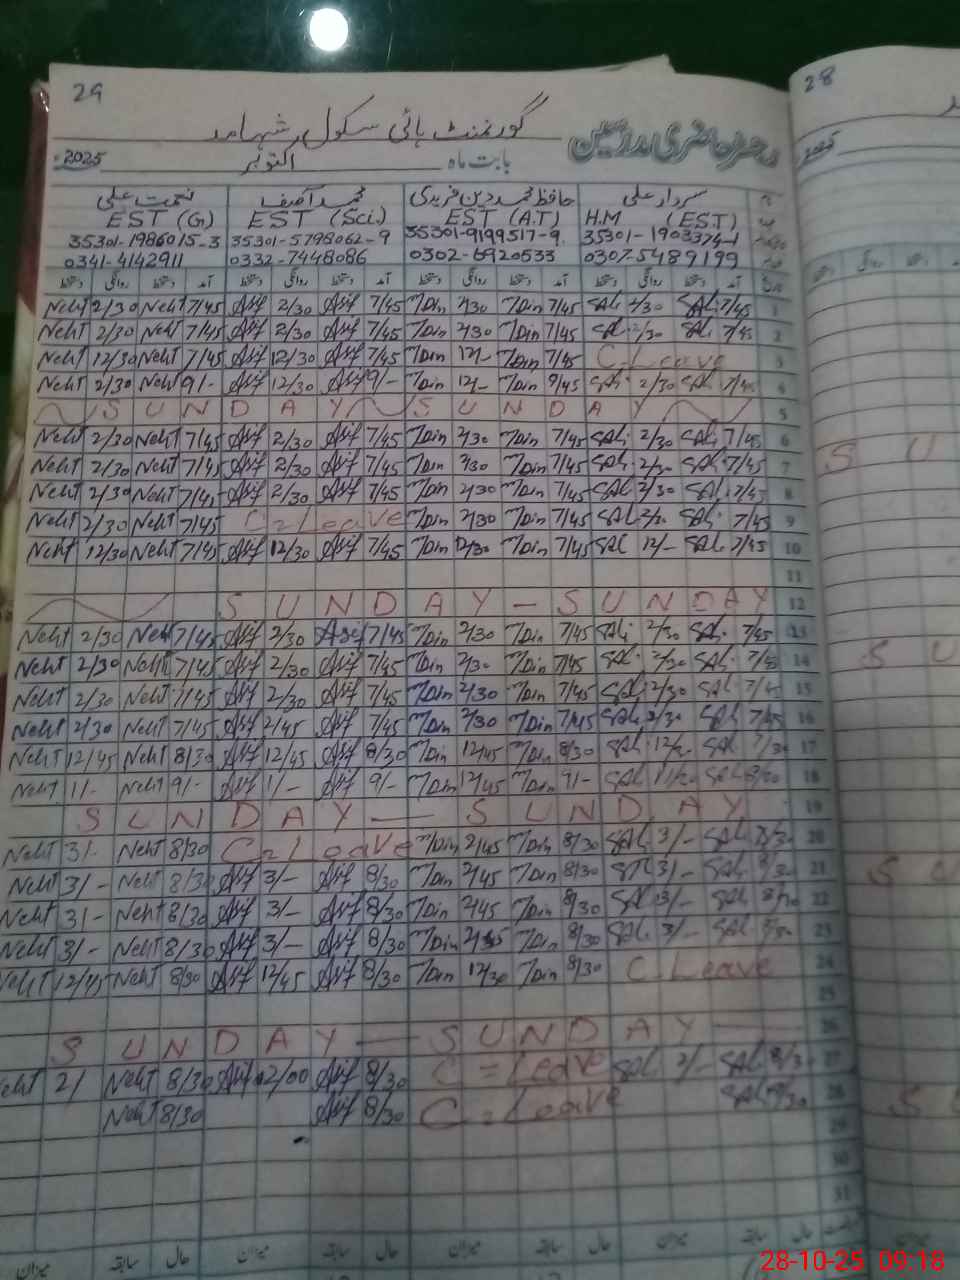 29
28
گورنمنٹ ہائی سکول
رجسٹر حاضری مدرسین
2025 اکتوبر بابت ماہ
نعمت علی محمد آصف حافظ محمد دین فریدی سردار علی
EST (G) EST (Sci.) EST (A.T) H.M (EST)
35301-1986015-3 35301-5798062-9 35301-9199517-9 35301-1903374-1
0341-4142911 0332-7448086 0302-6920533 0307-5489199
Neht 2/30 Neht 7/45 Asif 2/30 Asif 7/45 Din 2/30 Din 7/45 SAL 2/30 SAL 7/45 1
Neht 2/30 Neht 7/45 Asif 2/30 Asif 7/45 Din 2/30 Din 7/45 SAL 2/30 SAL 7/45 2
Neht 12/30 Neht 7/45 Asif 12/30 Asif 7/45 Din 12/- Din 7/45 C-Leave 3
Neht 2/30 Neht 9/- Asif 12/30 Asif 9/- Din 12/- Din SAL 2/30 SAL 7/45 4
SUNDAY SUNDAY 5
Neht 2/30 Neht 7/45 Asif 2/30 Asif 7/45 Din 2/30 Din 7/45 SAL 2/30 SAL 7/45 6
Neht 2/30 Neht 7/45 Asif 2/30 Asif 7/45 Din 2/30 Din 7/45 SAL 2/30 SAL 7/45 7
Neht 2/30 Neht 7/45 Asif 2/30 Asif 7/45 Din 2/30 Din 7/45 SAL 2/30 SAL 7/45 8
Neht 2/30 Neht 7/45 C=Leave Din 2/30 Din 7/45 SAL 2/30 SAL 7/45 9
Neht 12/30 Neht 7/45 Asif 12/30 Asif 7/45 Din 12/30 Din 7/45 SAL 12/- SAL 7/45 10
11
SUNDAY - SUNDAY 12
Neht 2/30 Neht 7/45 Asif 2/30 Asif 7/45 Din 2/30 Din 7/45 SAL 2/30 SAL 7/45 13
Neht 2/30 Neht 7/45 Asif 2/30 Asif 7/45 Din 2/30 Din 7/45 SAL 2/30 SAL 7/45 14
Neht 2/30 Neht 7/45 Asif 2/30 Asif 7/45 Din 2/30 Din 7/45 SAL 2/30 SAL 7/45 15
Neht 2/30 Neht 7/45 Asif 2/45 Asif 7/45 Din 2/30 Din 7/45 SAL 2/30 SAL 7/45 16
Neht 12/45 Neht 8/30 Asif 12/45 Asif 8/30 Din 12/45 Din 8/30 SAL SAL 17
Neht 1/- Neht 9/- Asif 1/- Asif 9/- Din 12/45 Din 9/- SAL SAL 18
SUNDAY — SUNDAY 19
Neht 3/- Neht 8/30 C=Leave Din 2/45 Din 8/30 SAL 3/- SAL 8/30 20
Neht 3/- Neht 8/30 Asif 3/- Asif 8/30 Din 2/45 Din 8/30 SAL 3/- SAL 8/30 21
Neht 3/- Neht 8/30 Asif 3/- Asif 8/30 Din 2/45 Din 8/30 SAL 3/- SAL 8/30 22
Neht 3/- Neht 8/30 Asif 3/- Asif 8/30 Din 2/45 Din 8/30 SAL 3/- SAL 8/30 23
Neht 12/45 Neht 8/30 Asif 12/45 Asif 8/30 Din 12/30 Din 8/30 C.Leave 24
25
SUNDAY — SUNDAY — 26
Neht 2/ Neht 8/30 Asif 02/00 Asif 8/30 C=Leave SAL 2/- SAL 8/30 27
Neht 8/30 Asif 8/30 C=Leave SAL 8/30 28
29
30
31
میزان سابقہ حال میزان سابقہ حال میزان سابقہ حال میزان سابقہ حال
28-10-25 09:18